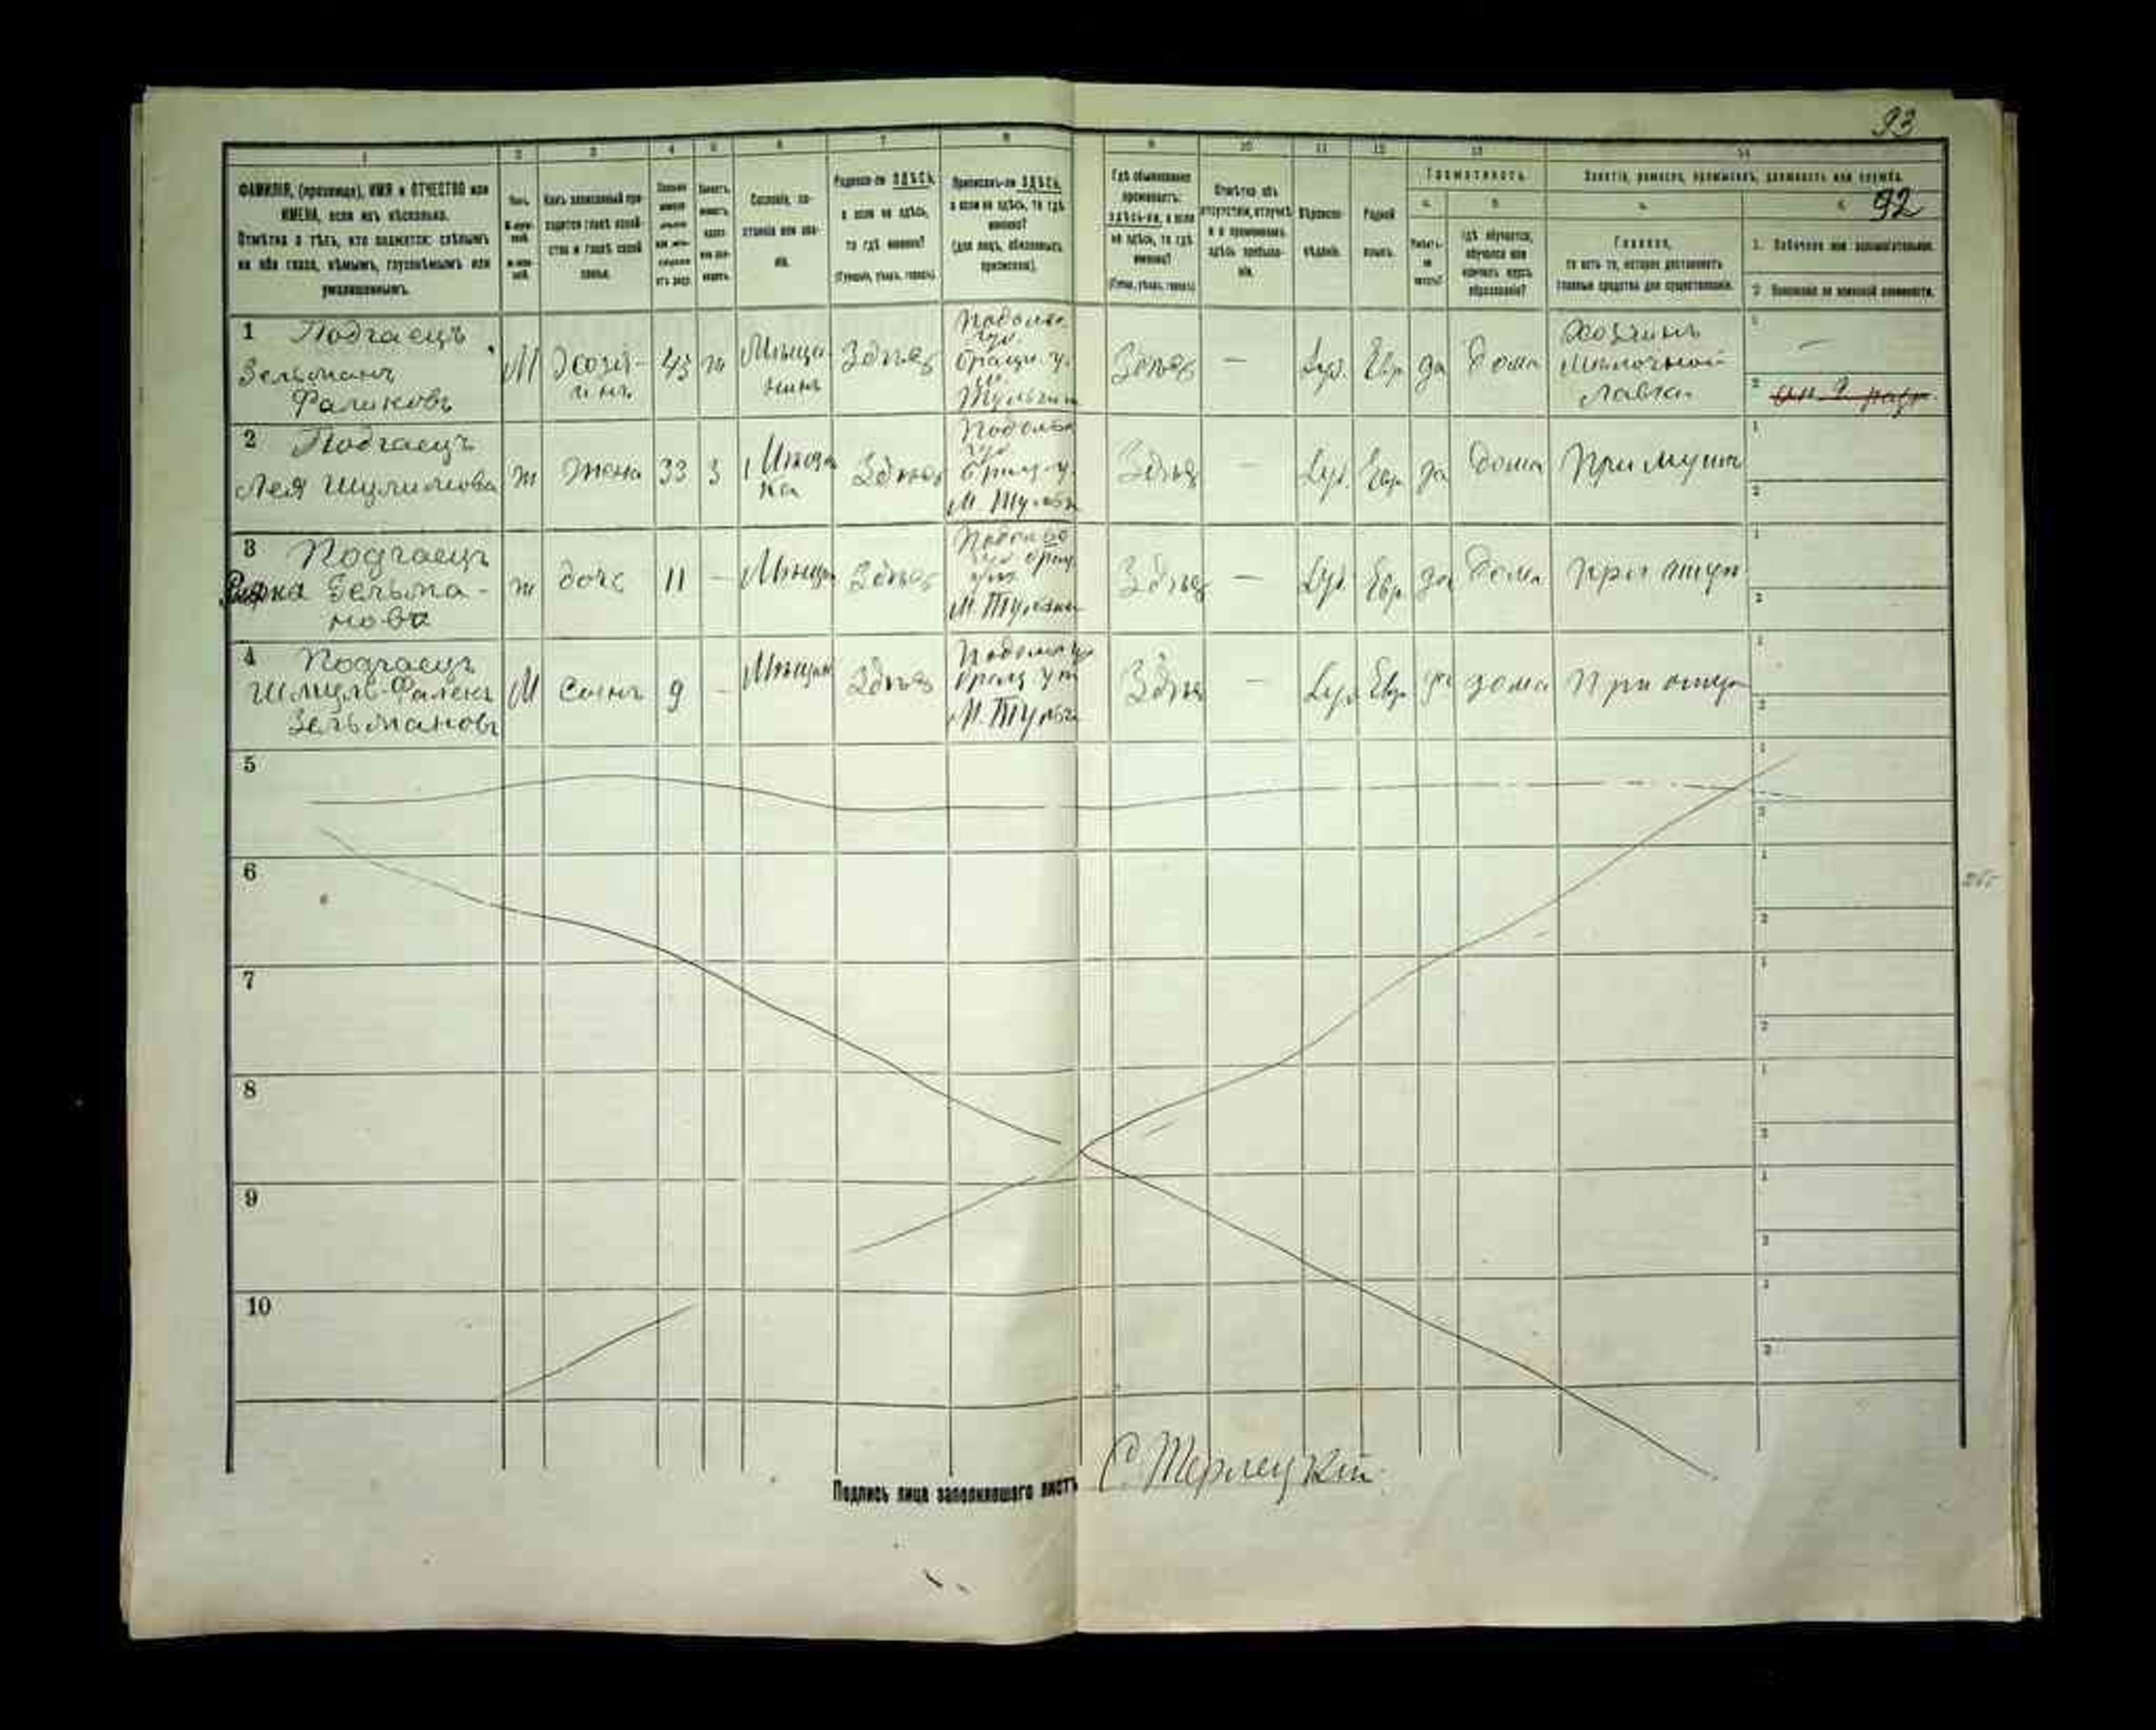 93
92
1 2 3 4 5 6 7 8 9 10 11 12 13 14
ФАМИЛІЯ, (прозвище), ИМЯ и ОТЧЕСТВО или
ИМЕНА, если ихъ нѣсколько.
Отмѣтка о тѣхъ, кто окажется: слѣпымъ
на оба глаза, нѣмымъ, глухонѣмымъ или
умалишеннымъ.
Полъ.
Какъ записанный при-
ходится главѣ хозяй-
ства и главѣ своей
семьи.
Сословіе, со-
стояніе или зва-
ніе.
Родился-ли ЗДѢСЬ,
а если не здѣсь,
то гдѣ именно?
(Губернія, уѣздъ, городъ).
Приписанъ-ли ЗДѢСЬ,
а если не здѣсь, то гдѣ
именно?
(для лицъ, обязанныхъ
припискою).
Гдѣ обыкновенно
проживаетъ:
здѣсь-ли, а если
не здѣсь, то гдѣ
именно?
(Губер., уѣздъ, городъ).
Отмѣтка объ
отсутствіи, отлучкѣ
и о временномъ
здѣсь пребыва-
ніи.
Вѣроиспо-
вѣданіе.
Родной
языкъ.
Грамотность.
а.
б.
Умѣетъ-
ли
читать?
гдѣ обучается,
обучался или
кончилъ курсъ
образованія?
Занятіе, ремесло, промыселъ, должность или служба.
Главное,
то есть то, которое доставляетъ
главныя средства для существованія.
1. Побочное или вспомогательное.
2. Положеніе по воинской повинности.
1 Подгаецъ
Зельманъ
Фаликовъ
М
Хозя-
инъ
43
ж
Мѣща-
нинъ
Здѣсь
Подольс.
губ
Брацл. у.
м. Тульчин
Здѣсь
—
Іуд.
Евр
да
дома
Хозяинъ
мелочной
лавки
1
—
2
2 Подгаецъ
Лея Шулимова
ж
жена
33
з
Мѣщан
ка
Здѣсь
Подольс
губ
Брац. у.
м. Тульч
Здѣсь
—
Іуд.
Евр
да
дома
При мужѣ
1
2
3 Подгаецъ
Зельма-
нова
ж
дочь
11
—
Мѣщан
Здѣсь
Подольс
губ Брац
уѣз
м. Тульчин
Здѣсь
—
Іуд.
Евр.
да
дома
При отцѣ
1
2
4 Подгаецъ
Шмуль-Фалекъ
Зельмановъ
М
сынъ
9
—
Мѣщан
Здѣсь
Подольс гу
Брац уѣ
м. Тульч
Здѣсь
—
Іуд.
Евр.
да
дома
При отцѣ
1
2
5
1
2
6
1
2
7
1
2
8
1
2
9
1
2
10
1
2
Подпись лица заполнявшаго листъ С. Терлецкій